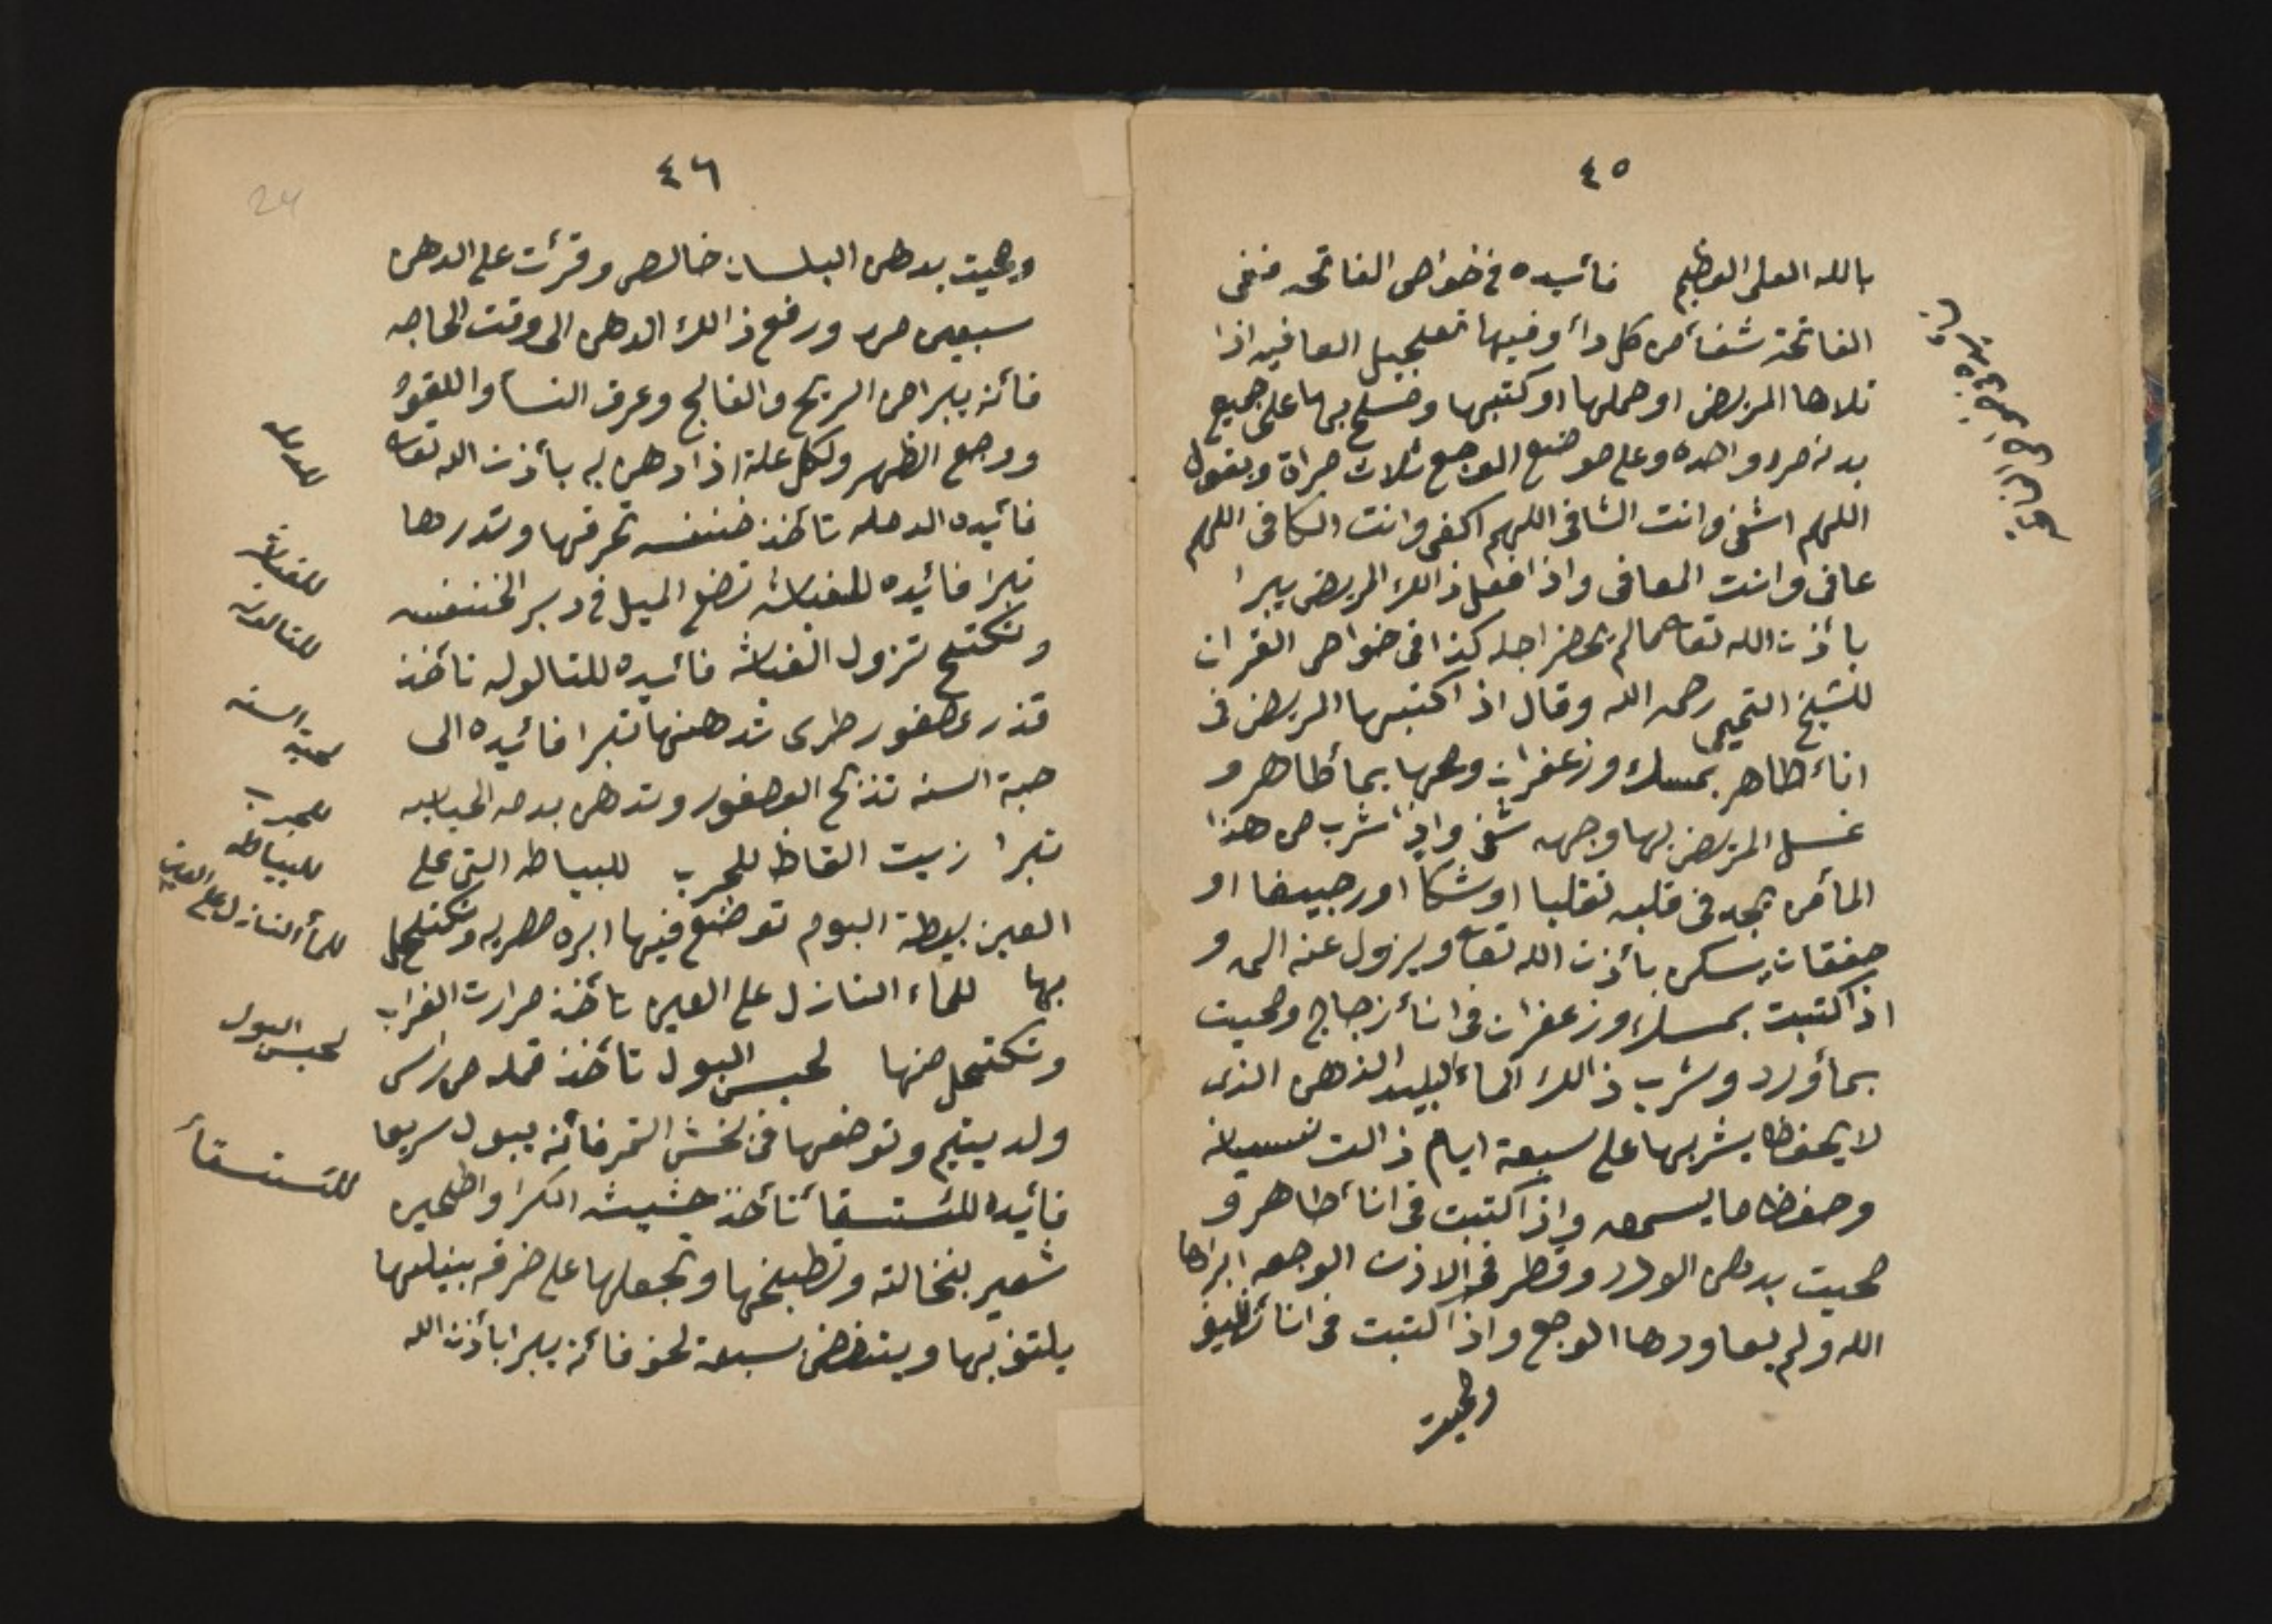 ٤٥
بالله العلى العظيم فائيده فى خواص الفاتحه ففى
الفاتحة شفأ من كل دأ وفيها تعجيل العافيه اذا
تلاها المريض او حملها او كتبها ومسح بها على جميع
بدنه مره واحده وعلى موضع الوجع ثلاث مراة ويقول
اللهم اشفى وانت الشافى اللهم اكفى وانت الكافى اللهم
عافى وانت المعافى واذا فعل ذالك المريض يبرا
بأذن الله تعا مالم يحضر اجله كذا فى خواص القران
للشيخ التميمى رحمه الله وقال اذا كتبها المريض فى
اناء طاهر بمسك وزعفران ومحها بمأ طاهر و
غسل المريض بها وجهه شفى واذا شرب من هذا
المأ من يجد فى قلبه تقلبا او شكا او رجيفا او
خفقان يسكن بأذن الله تعا ويزول عنه الم و
اذا كتبت بمسك وزعفران فى انأ زجاج ومحيت
بمأ ورد وشرب ذالك الماء البليد الذهن الذى
لا يحفظ يشربها على سبعة ايام زالت نسيانه
وحفظ ما يسمعه واذا كتبت فى انأ طاهر و
محيت بدهن الورد وقطر فى الاذن الوجعه ابراها
الله ولم يعاودها الوجع واذا كتبت فى انأ نظيف
ومحيت
٤٦
ومحيت بدهن البلسان خالص وقرأت على الدهن
سبعين مره ورفع ذالك الدهن الى وقت الحاجه
فأنه يبرا من الريح والفالج وعرق النسأ واللقوة
ووجع الظهر ولكل علة اذا دهن به بأذن الله تعا
فائيده الدمله تأخذ خنفسه تحرقها وتدرها
تبرا فائيده للغباش تضع الميل فى دبر الخنفسه
وتكتحل تزول الغباش فائيده للتالوله تأخذ
قذر عصفور طرى تدهنها تبرا فائيده الى
حبة السنه تذبح العصفور وتدهن بدمه الحبايه
تبرا زيت القاظ للجرب للبياطه التى على
العين بيطة البوم توضع فيها ابره مصريه وتكتحل
بها للماء النازل على العين تأخذ مرارت الغراب
وتكتحل منها لحبس البول تأخذ قمله من راس
ولد يتيم وتوضعها فى نخش التمر فأنه يبول سريعا
فائيده للستسقأ تأخذ حشيشه الكرا واطحين
شعير بنخالته وتطبخها وتجعلها على خرقه بينلها
يلتف بها ويتنظف سبعة لحف فأنه يبرا بأذن الله
للدمله
للغباش
للتالوله
لحبة السنه
للجرب
للبياطه
للمأ النازل على العين
لحبس البول
للستسقأ